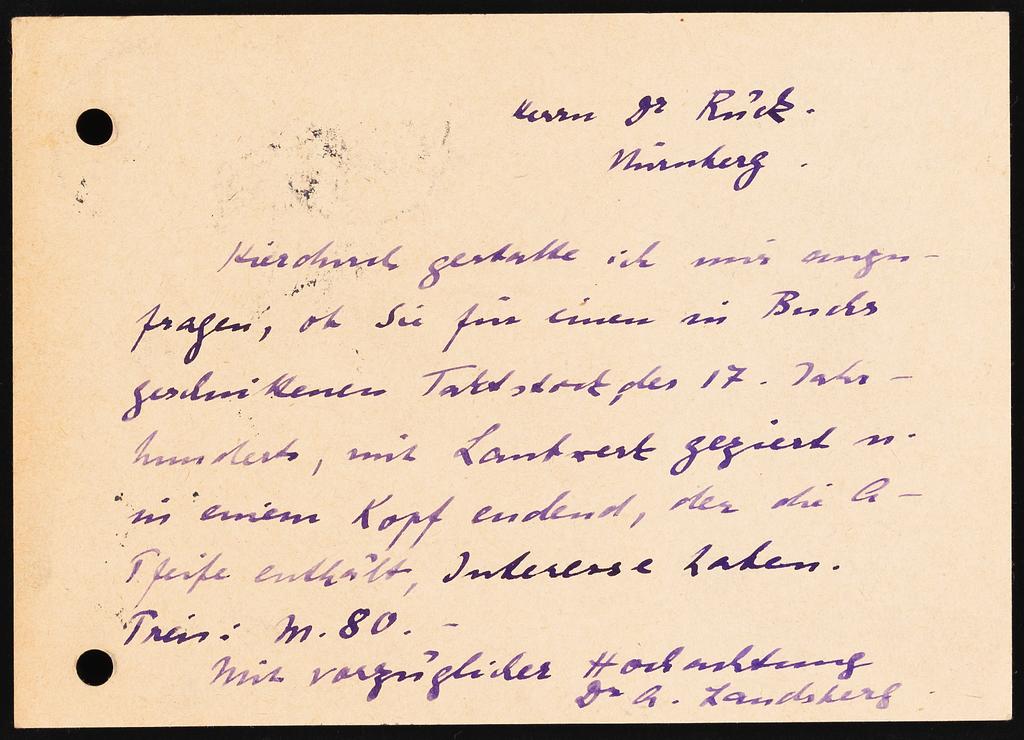 Herrn Dr Rück.
Nürnberg.
Hierdurch gestatte ich mir anzu-
fragen, ob Sie für einen in Buchs
geschnittenen Taktstock, des 17. Jahr-
hunderts, mit Laubwerk geziert u.
in einem Kopf endend, der die A-
Pfeife enthält, Interesse haben.
Preis: M. 80.-
Mit vorzüglicher Hochachtung
Dr A. Landsberg.